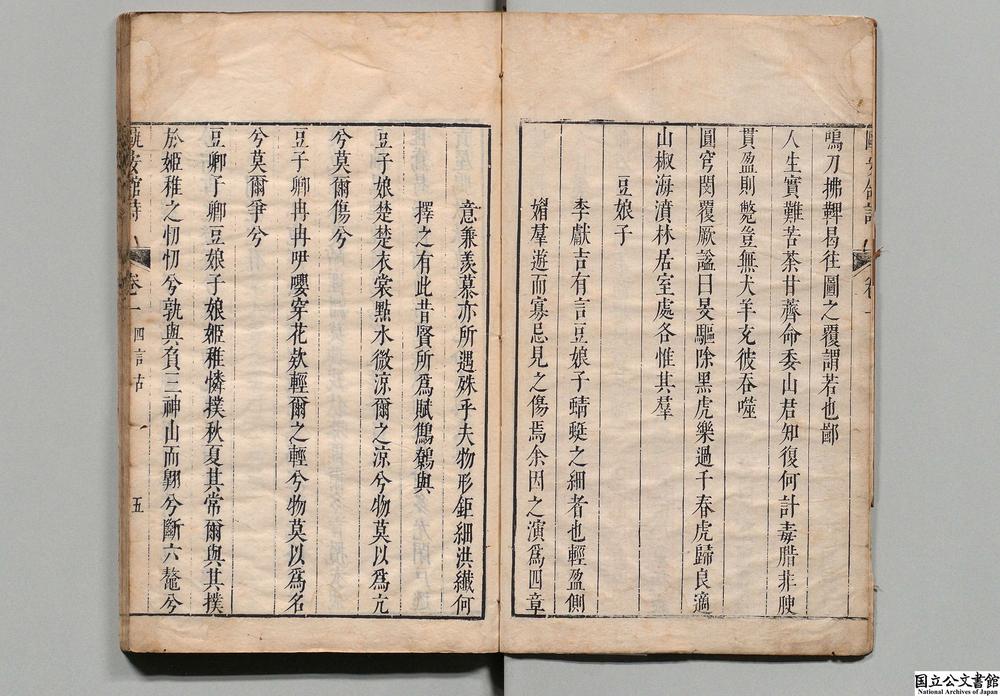 鳴刀拂鞞曷往圖之覆謂若也鄙
人生實難苦荼甘薺命委山君知復何計毒腊非腴
貫盈則斃豈無犬羊充彼吞噬
圓官閔覆厥謐曰旻驅除黑虎樂過千春虎歸良適
山椒海濆林居室處各惟其羣
豆娘子
李獻吉有言豆娘子蜻蜓之細者也輕盈側
媚羣遊而寡忌見之傷焉余因之演爲四章
意兼羡慕亦所遇殊乎夫物形鉅細洪纖何
擇之有此昔賢所爲賦鷦鷯與
豆子娘楚楚衣裳點水微涼爾之涼兮物莫以爲亢
兮莫爾傷兮
豆子卿冉冉咿嚶穿花欻輕爾之輕兮物莫以爲名
兮莫爾爭兮
豆卿子卿豆娘子娘姬稚憐撲秋夏其常爾與其撲
於姬稚之忉忉兮孰與負三神山而翺兮斷六鼇兮
甔甀館詩 卷一 四言古 五
国立公文書館
National Archives of Japan